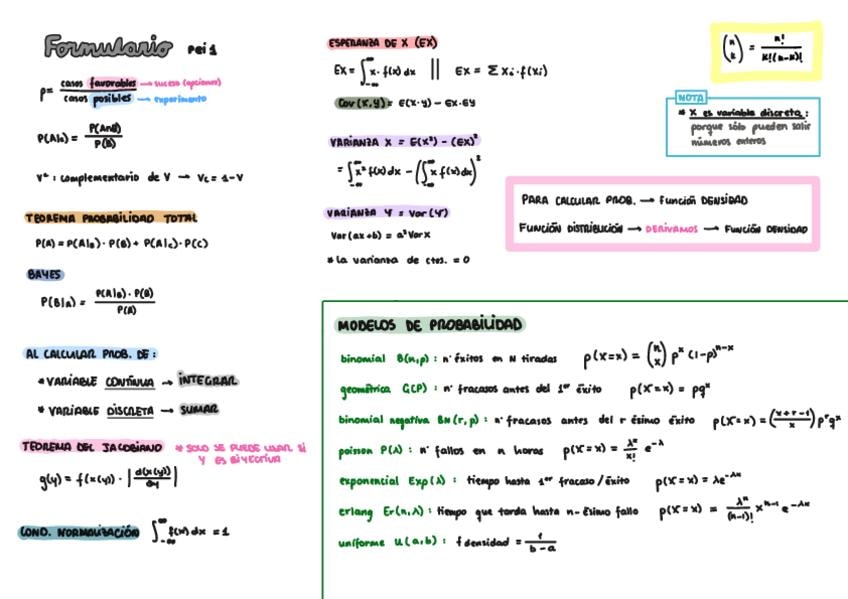 Formulario PEI 1
p = casos favorables → suceso (opciones) / casos posibles → experimento
P(A|B) = P(A∩B) / P(B)
Vᶜ : complementario de V → Vc = 1 - V
TEOREMA PROBABILIDAD TOTAL
P(A) = P(A|B) · P(B) + P(A|C) · P(C)
BAYES
P(B|A) = P(A|B) · P(B) / P(A)
AL CALCULAR PROB. DE :
* VARIABLE CONTÍNUA → INTEGRAR
* VARIABLE DISCRETA → SUMAR
TEOREMA DEL JACOBIANO * SOLO SE PUEDE USAR SI
Y ES BIYECTIVA
g(y) = f(x(y)) · |d(x(y)) / dy|
COND. NORMALIZACIÓN ∫_{-∞}^{∞} f(x) dx = 1
ESPERANZA DE X (EX)
EX = ∫_{-∞}^{∞} x · f(x) dx || EX = Σ xi · f(xi)
Cov(X,Y) = E(X·Y) - EX·EY
VARIANZA X = E(X²) - (EX)²
= ∫_{-∞}^{∞} x² f(x) dx - (∫_{-∞}^{∞} x f(x) dx)²
VARIANZA Y = Var(Y)
Var(ax+b) = a² Var X
* la varianza de ctes. = 0
(n k) = n! / k!(n-k)!
NOTA
* X es variable discreta :
porque sólo pueden salir
números enteros
PARA CALCULAR PROB. → Función DENSIDAD
FUNCIÓN DISTRIBUCIÓN → DERIVAMOS → FUNCIÓN DENSIDAD
MODELOS DE PROBABILIDAD
binomial B(n,p) : nº éxitos en N tiradas p(X=x) = (n x) pˣ (1-p)ⁿ⁻ˣ
geométrica G(P) : nº fracasos antes del 1er éxito p(X=x) = pqˣ
binomial negativa BN(r,p) : nº fracasos antes del r ésimo éxito p(X=x) = (x+r-1 x) pʳqˣ
poisson P(λ) : nº fallos en n horas p(X=x) = λˣ / x! e^-λ
exponencial Exp(λ) : tiempo hasta 1er fracaso/éxito p(X=x) = λe^-λx
erlang Er(n,λ) : tiempo que tarda hasta n-ésimo fallo p(X=x) = λⁿ / (n-1)! xⁿ⁻¹ e^-λx
uniforme U(a,b) : f densidad = 1 / b-a